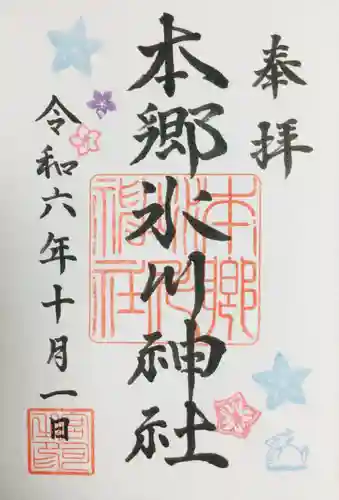 奉拝
本郷氷川神社
令和六年十月一日
本郷氷川神社